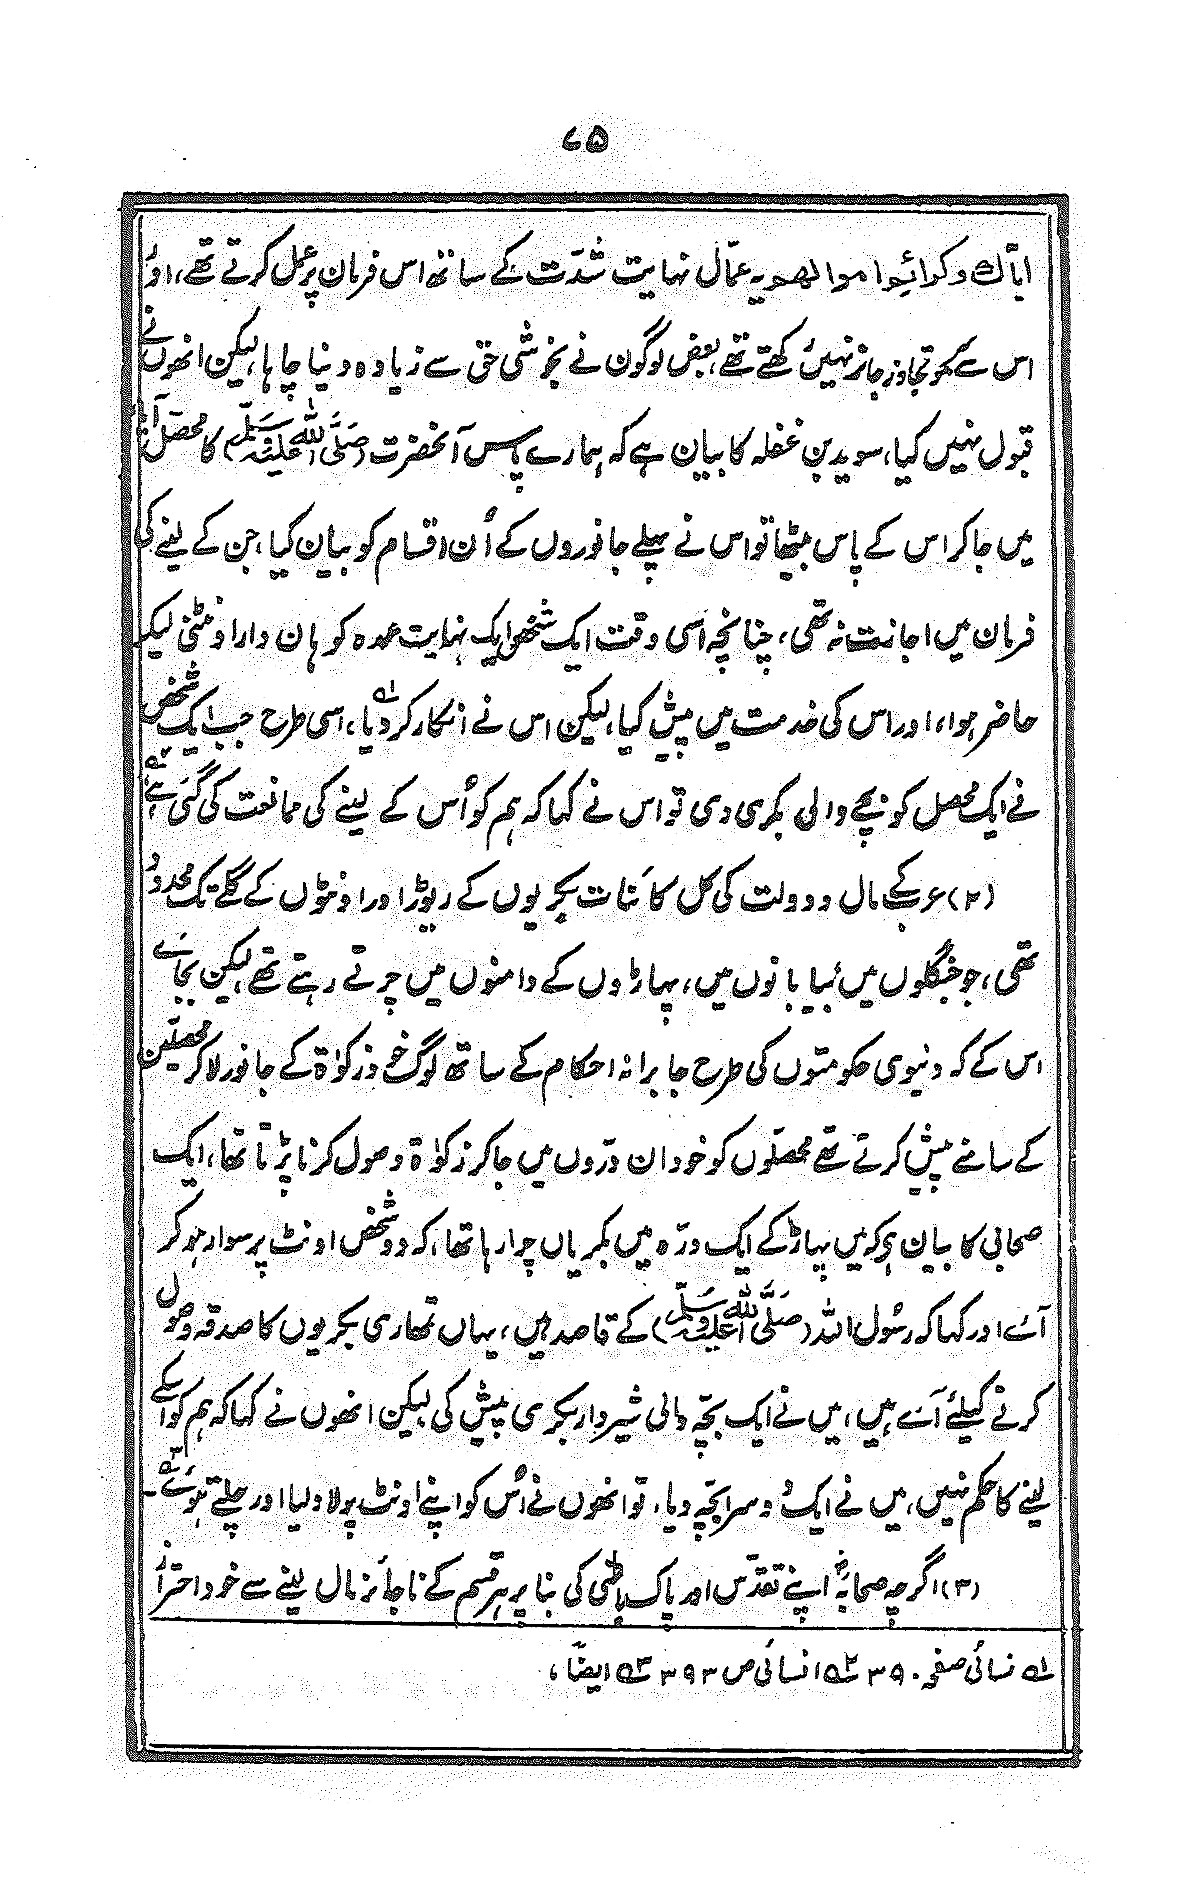 ۷۵
ایاک وکرائیوا موالھویہ عمّال نہایت شدّت کے ساتھ اس فرمان پر عمل کرتے تھے، اور
اس سے تجاوز جائز نہیں رکھتے تھے، بعض لوگون نے بخوشی حق سے زیادہ دنیا چاہا، لیکن انھوں نے
قبول نہیں کیا، سوید بن غفلہ کا بیان ہے کہ ہمارے پاس آنحضرت (صَلَّی اللہ عَلَیْہِ وَسَلَّم) کا محصّل آیا
میں جا کر اس کے پاس بیٹھا تو اس نے پہلے جانوروں کے اُن اقسام کو بیان کیا، جن کے لینے کی
فرمان میں اجازت نہ تھی، چنانچہ اسی وقت ایک شخص ایک نہایت عمدہ کوہان دار اونٹنی لیکر
حاضر ہوا، اور اس کی خدمت میں پیش کیا، لیکن اس نے انکار کر دیا،۱؎ اسی طرح جب ایک شخص
نے ایک محصل کو بچے والی بکری دی تو اس نے کہا کہ ہم کو اُس کے لینے کی ممانعت کی گئی ہے،۲؎
(۲) عرب کے مال و دولت کی کل کائنات بکریوں کے ریوڑ اور اونٹوں کے گلے تک محدود
تھی، جو جنگلوں میں، بیابانوں میں، پہاڑوں کے دامنوں میں چرتے رہتے تھے، لیکن بجائے
اس کے کہ دنیوی حکومتوں کی طرح جابرانہ احکام کے ساتھ لوگ خود زکوٰۃ کے جانور لا کر محصّلین
کے سامنے پیش کرتے تھے محصّلوں کو خود ان درّوں میں جا کر زکوٰۃ وصول کرنا پڑتا تھا، ایک
صحابی کا بیان ہو کہ میں پہاڑ کے ایک درّہ میں بکریاں چرا رہا تھا، کہ دو شخص اونٹ پر سوار ہو کر
آئے اور کہا کہ رسُول اللہ (صَلَّی اللہ عَلَیْہِ وَسَلَّم) کے قاصد ہیں، یہاں تمھاری بکریوں کا صدقہ وصُول
کرنے کیلئے آئے ہیں، میں نے ایک بچّہ والی شیردار بکری پیش کی لیکن انھوں نے کہا کہ ہم کو اسکے
لینے کا حکم نہیں، میں نے ایک دوسرا بچّہ دیا، تو انھوں نے اُس کو اپنے اونٹ پر لاد لیا اور چلتے ہوئے۳؎۔
(۳) اگرچہ صحابہؓ اپنے تقدّس اور پاک باطنی کی بنا پر ہر قسم کے ناجائز مال لینے سے خود احتراز
۱؎ نسائی صفحہ ۳۹۰ ۲؎ انسائی ص ۳۹۳ ۳؎ ایضًا،